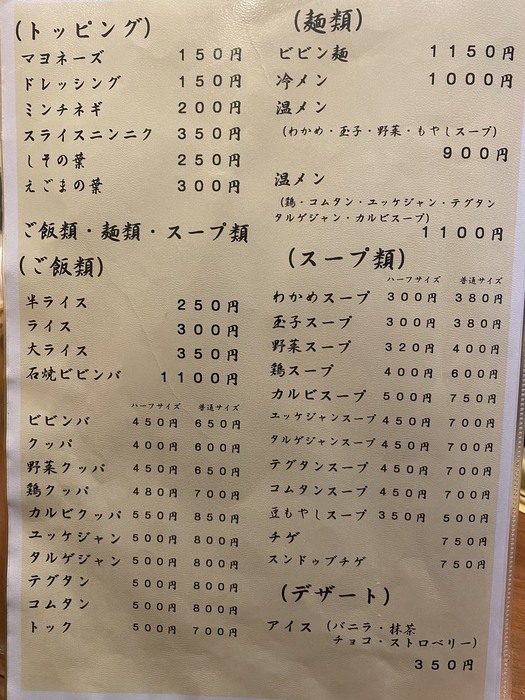 (トッピング)
マヨネーズ 150円
ドレッシング 150円
ミンチネギ 200円
スライスニンニク 350円
しその葉 250円
えごまの葉 300円
ご飯類・麺類・スープ類
(ご飯類)
半ライス 250円
ライス 300円
大ライス 350円
石焼ビビンバ 1100円
ハーフサイズ 普通サイズ
ビビンバ 450円 650円
クッパ 400円 600円
野菜クッパ 450円 650円
鶏クッパ 480円 700円
カルビクッパ 550円 850円
ユッケジャン 500円 800円
タルゲジャン 500円 800円
テグタン 500円 800円
コムタン 500円 800円
トック 500円 700円
(麺類)
ビビン麺 1150円
冷メン 1000円
温メン
(わかめ・玉子・野菜・もやしスープ)
900円
温メン
(鶏・コムタン・ユッケジャン・テグタン
タルゲジャン・カルビスープ)
1100円
(スープ類)
ハーフサイズ 普通サイズ
わかめスープ 300円 380円
玉子スープ 300円 380円
野菜スープ 320円 400円
鶏スープ 400円 600円
カルビスープ 500円 750円
ユッケジャンスープ 450円 700円
タルゲジャンスープ 450円 700円
テグタンスープ 450円 700円
コムタンスープ 450円 700円
豆もやしスープ 350円 500円
チゲ 750円
スンドゥブチゲ 750円
(デザート)
アイス (バニラ・抹茶
チョコ・ストロベリー)
350円